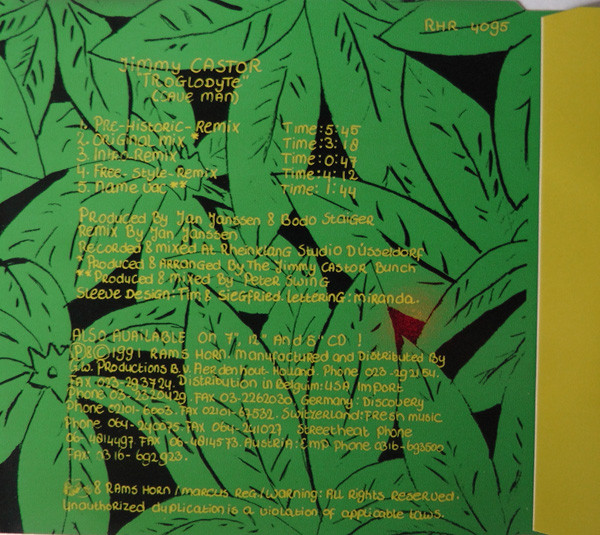 RHR 4095
Jimmy CASTOR
"TROGLODYTE"
(CAVE MAN)
1. PRE-HISTORIC-REMIX Time: 5:45
2. ORIGINAL MIX * Time: 3:18
3. Intro-Remix Time: 0:47
4. FREE-STYLE-REMIX Time: 4:12
5. Name Voc ** Time: 1:44
Produced By Jan Janssen & Bodo Staiger
Remix By Jan Janssen
RECORDED & MIXED AT Rheinklang Studio Düsseldorf
* PRODUCED & ARRANGED By The Jimmy CASTOR Bunch
** PRODUCED & MIXED By Peter Swing
SLEEVE DESIGN: Tim & Siegfried. Lettering: Miranda.
ALSO AVAILABLE ON 7", 12" And 5" CD !
Ⓟ&© 1991 RAMS HORN. Manufactured and Distributed By
G.W. Productions B.V. Aerdenhout-Holland. Phone 023-292154.
FAX 023-293724. Distribution in Belgium: USA Import
Phone 03-2320429 FAX 03-2262030 Germany: Discovery
Phone 02101-6003. FAX 02101-67532. Switzerland: Fresh music
Phone 064-240075 FAX 064-241027 Streetheat phone
06-4814497 FAX 06-4814573. Austria: Emp Phone 0316-693500
FAX: 0316-692923.
& RAMS HORN / MARCUS REG / WARNING: ALL Rights RESERVED.
Unauthorized duplication is a violation of applicable laws.